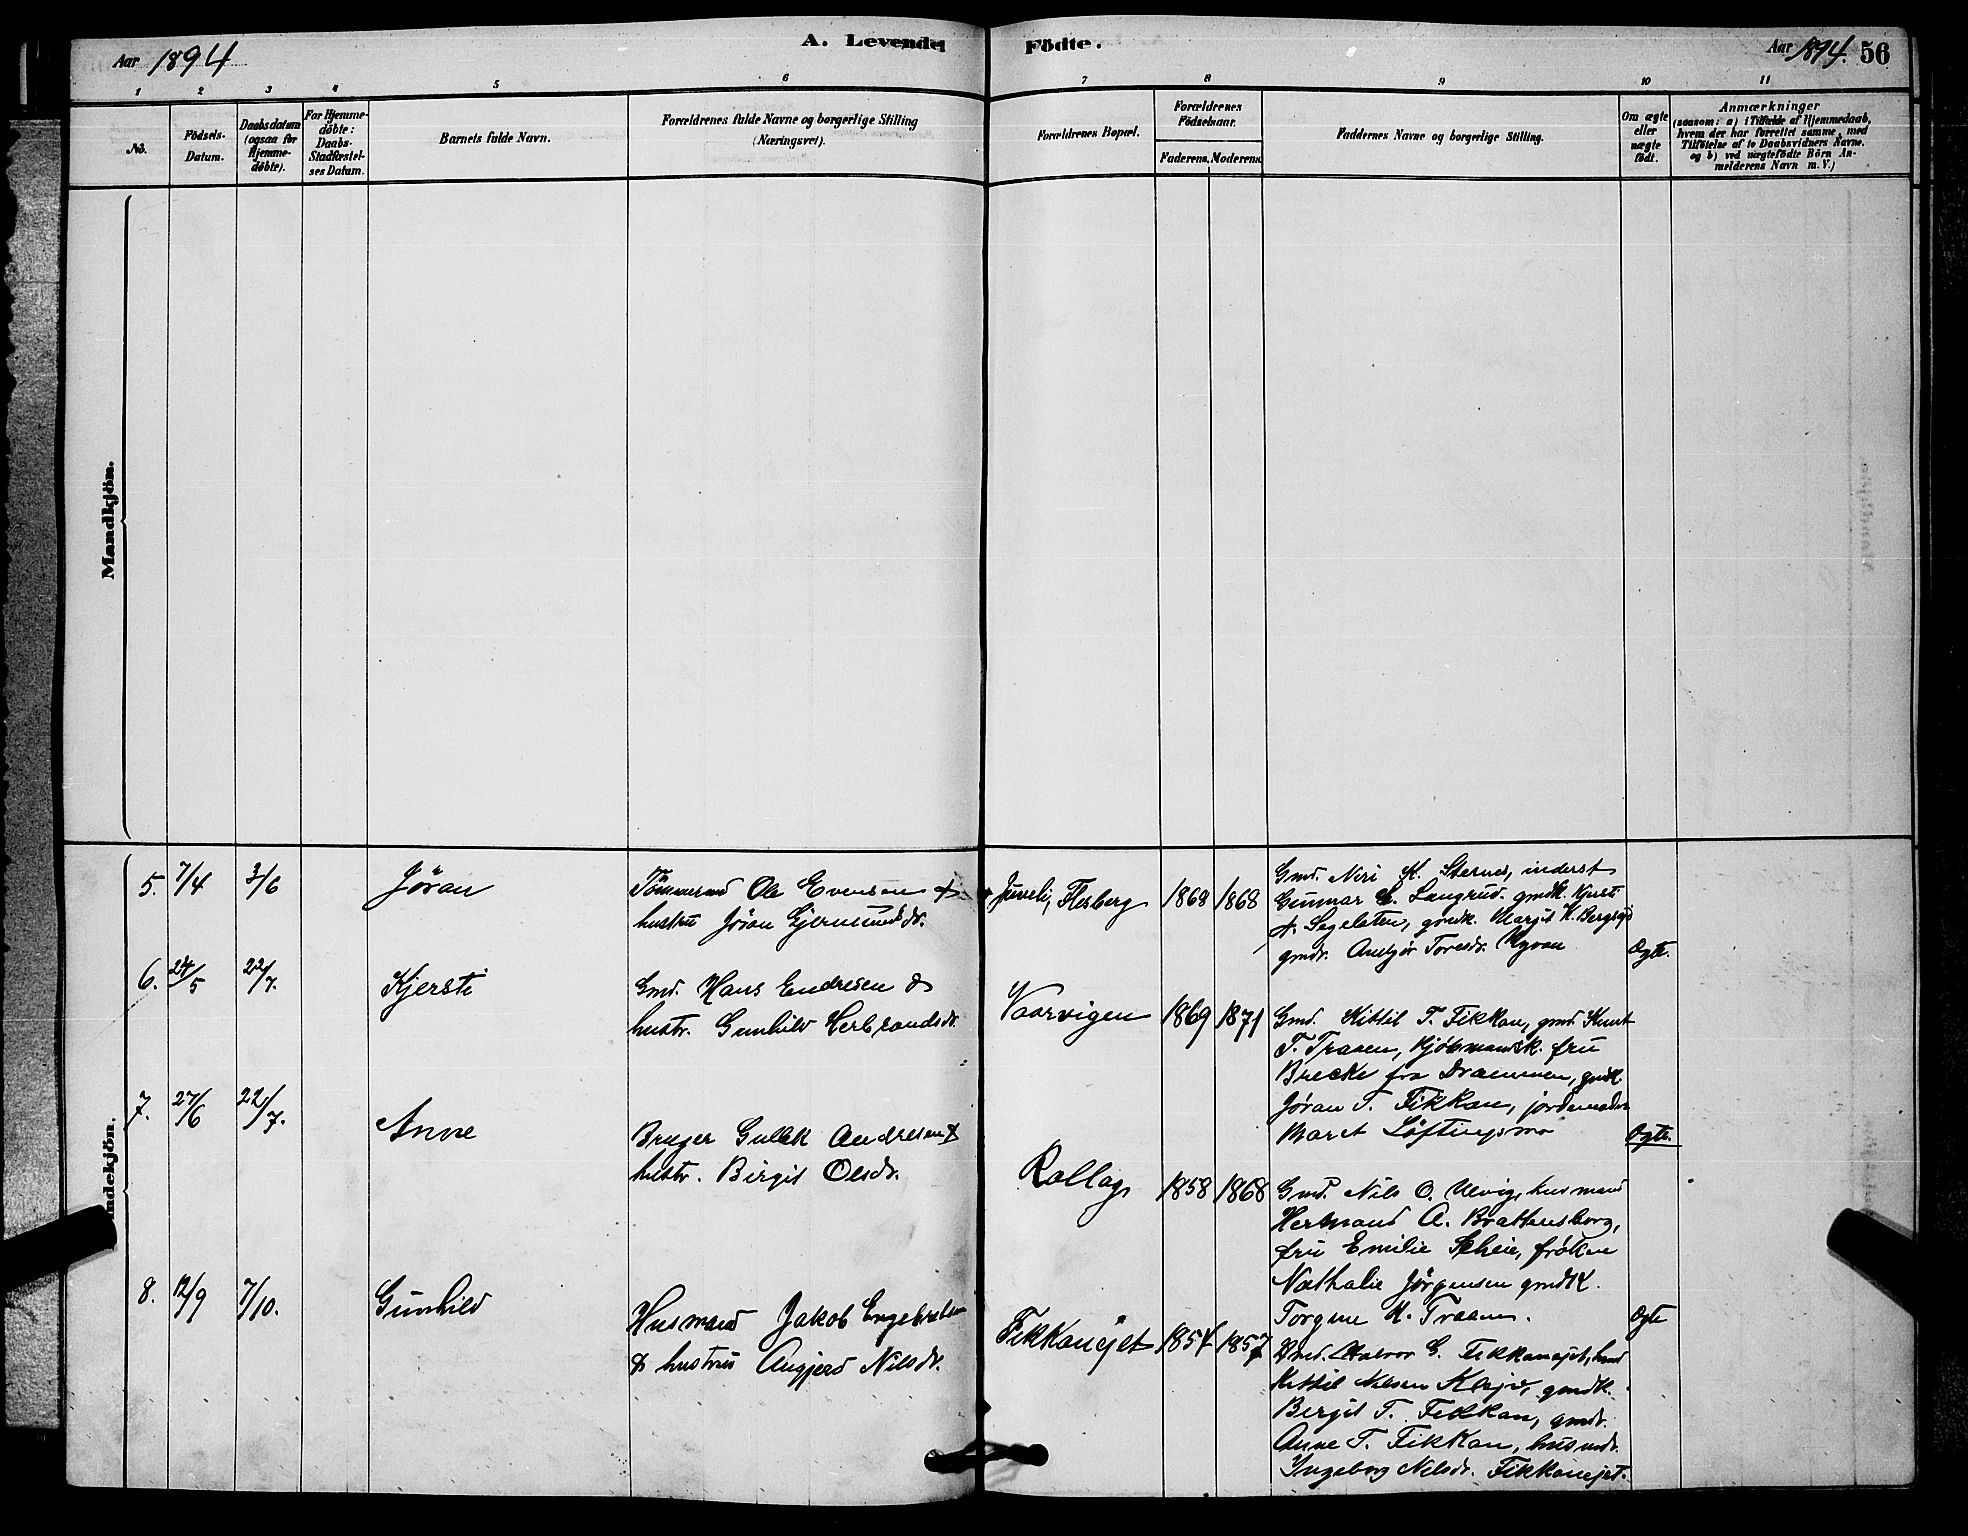 Aar 1894
A. Levende
Födte.
Aar 1894. 56
1 2 3 4 5 6 7 8 9 10 11
No.
Födsels-
Datum.
Daabsdatum
(ogsaa for
Hjemme-
döbte).
For Hjemme-
döbte:
Daabs-
Stadfæstel-
ses Datum.
Barnets fulde Navn.
Forældrenes fulde Navne og borgerlige Stilling
(Næringsvei).
Forældrenes Bopæl.
Forældrenes
Födselsaar.
Faderens. Moderens.
Faddernes Navne og borgerlige Stilling.
Om ægte
eller
uægte
födt.
Anmærkninger
(saasom: a) i Tilfælde af Hjemmedaab,
hvem der har forrettet samme, med
Tilföielse af to Daabsvidners Navne.
og b) ved uægtefödte Börn An-
melderens Navn m. V.)
Mandkjön.
indekjön.
5. 7/4 3/6 Jöran
Tömmermd Ole Evensen &
hustru Jöran Gjermundsdr.
Juveli, Flesberg 1868 1868
Gmd. Niri Sternes, inderst
Gunnar Langrud. gmdk. Kjersti
Segelsten, gmdk. Margit K.
gmdr. Toresdr. Myran
Ægte.
6. 24/5 22/7. Kjersti
Gmd. Hans Endresen &
hustr. Gunhild Herbrandsdr.
Vaarvigen 1869 1871
Gmd. Kittil T. Fikkan, gmd. Knut
T. Traaen, Kjöbmandsk. fru
Brecke fra Drammen, gmdk.
Jöran T. Fikkan, jordemoder
Maret Löftingsmo
Ægte.
7. 27/6 22/7. Anne
Bruger Gullik Andresen &
hustr. Birgit Olsdr.
Rollag 1858 1868
Gmd. Nils O. Ulvig, husmand
Hermand A. Brattensborg,
fru Emilie Scheie, fröken
Nathalie Jörgensen gmdk.
Torgine Traaen.
Ægte
8. 12/9 7/10. Gunhild
Husmand Jakob Engebretsen
& hustru Angjerd Nilsdr.
Fikkanejet 1854 1857
Halvor G. Fikkanejet,
Kittil Nilsen gmdk.
Bergit T. Fikkan, gmdr.
Anne T. Fikkan, husmdr.
Ingeborg Nilsdr. Fikkanejet.